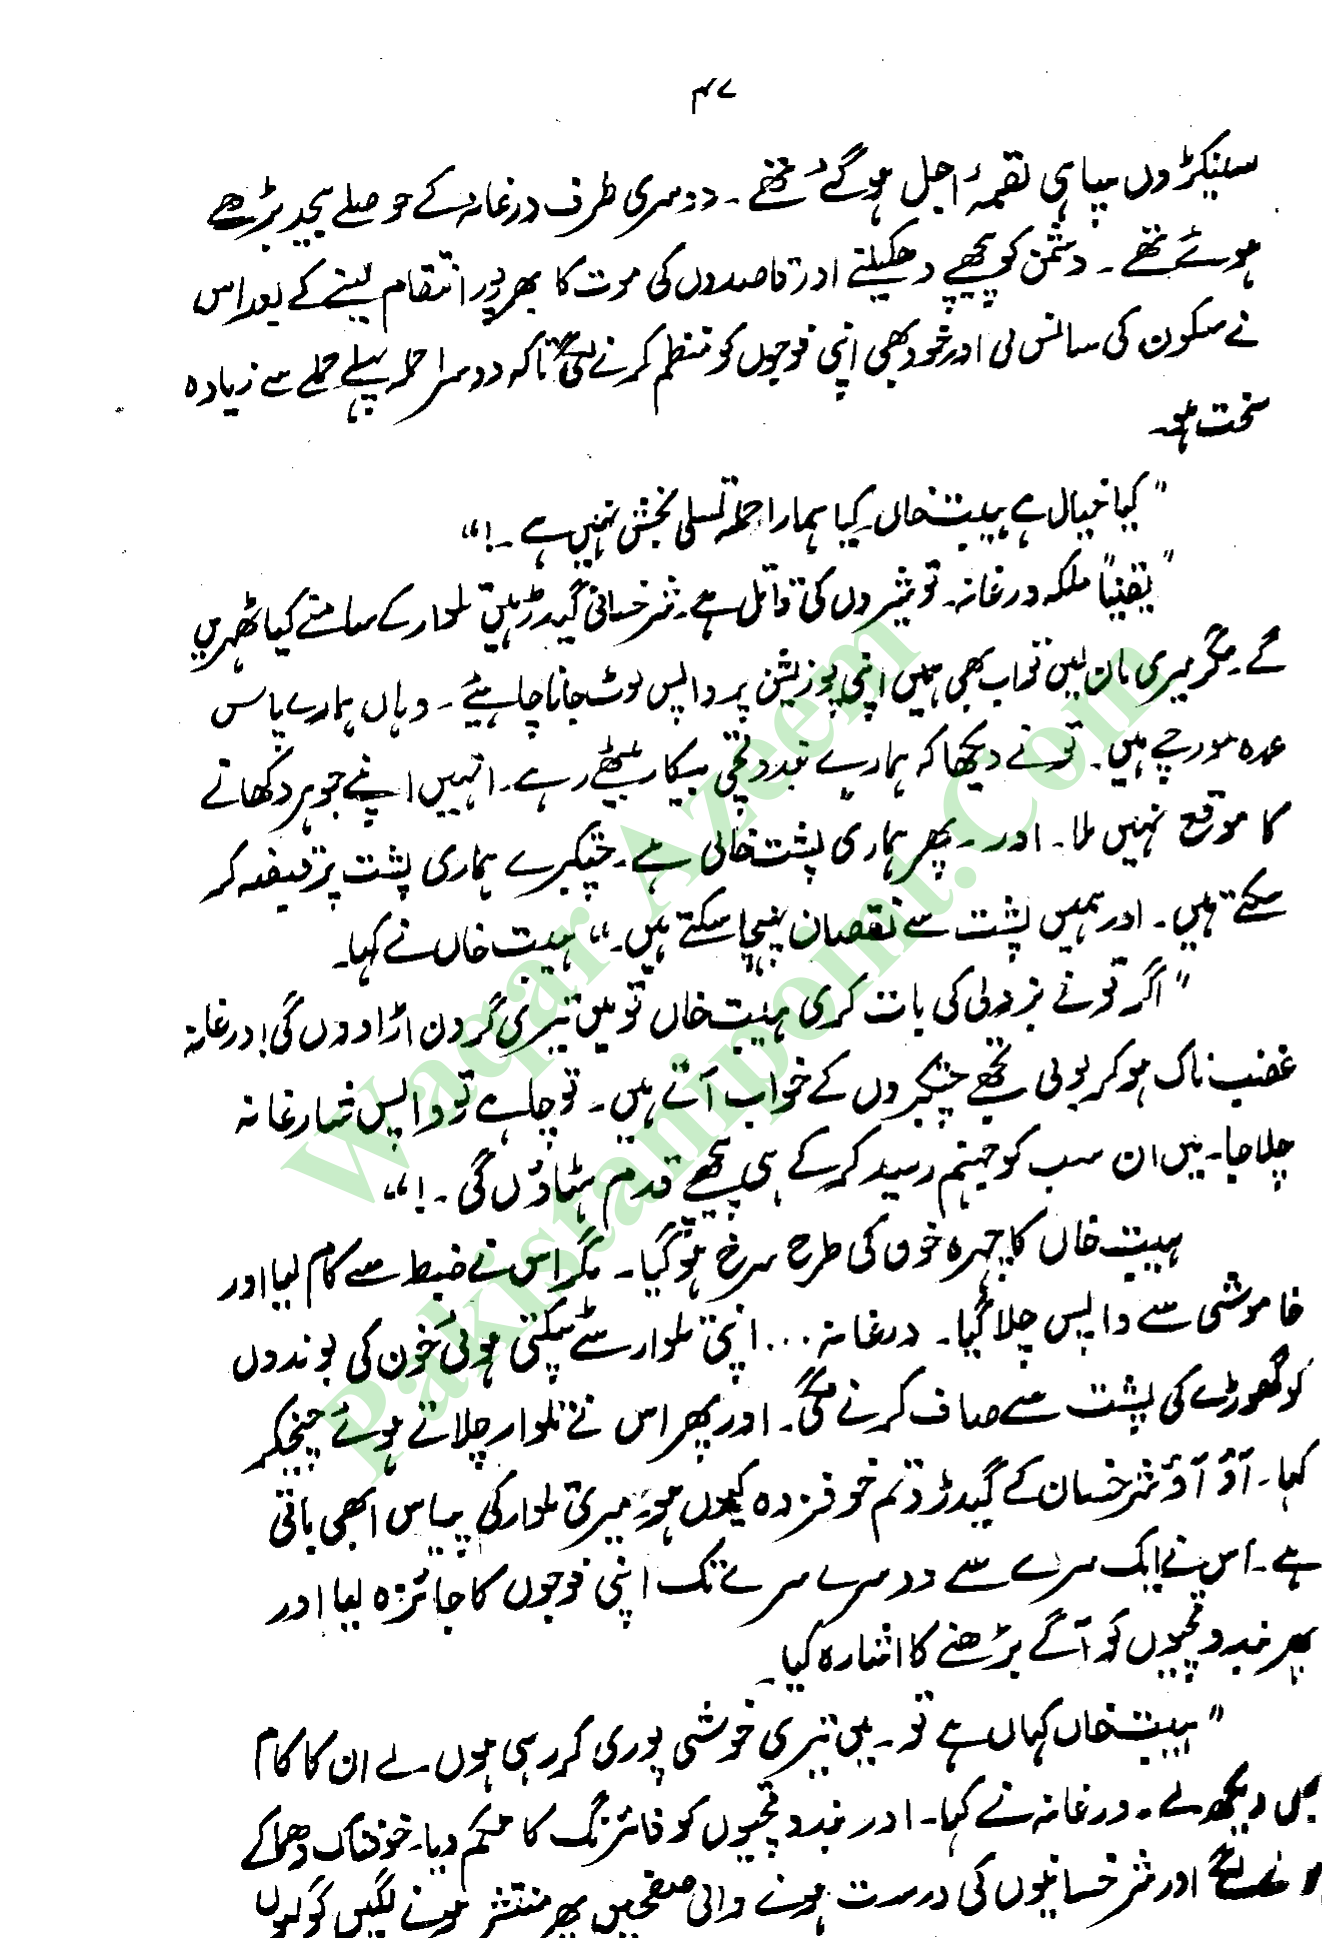 ۴۷
سینکڑوں سپاہی لقمۂ اجل ہو گئے تھے ۔ دوسری طرف درغانہ کے حوصلے بیحد بڑھے
ہوئے تھے ۔ دشمن کو پیچھے دھکیلنے اور قاصدوں کی موت کا بھرپور انتقام لینے کے بعد اس
نے سکون کی سانس لی اور خود بھی اپنی فوجوں کو منظم کرنے لگی تاکہ دوسرا حملہ پہلے حملے سے زیادہ
سخت ہو۔
" کیا خیال ہے ہیبت خاں ۔ کیا ہمارا حملہ تسلی بخش نہیں ہے ۔!"
" یقیناً ملکہ درغانہ ۔ تو شیروں کی قاتل ہے ۔ شرخسانی گیدڑ تیری تلوار کے سامنے کیا ٹھہریں
گے ۔ مگر میری مان لیں تو اب بھی ہمیں اپنی پوزیشن پر واپس لوٹ جانا چاہیئے ۔ وہاں ہمارے پاس
عمدہ مورچے ہیں ۔ تو نے دیکھا کہ ہمارے بندوقچی بیکار بیٹھے رہے ۔ انہیں اپنے جوہر دکھانے
کا موقع نہیں ملا ۔ اور ۔ پھر ہماری پشت خالی ہے ۔ چتکبرے ہماری پشت پر قبضہ کر
سکتے ہیں ۔ اور ہمیں پشت سے نقصان پہنچا سکتے ہیں ۔" ہیبت خاں نے کہا۔
" اگر تو نے بزدلی کی بات کری ہیبت خاں تو میں تیری گردن اڑا دوں گی! درغانہ
غضب ناک ہو کر بولی تجھے چتکبروں کے خواب آتے ہیں ۔ تو چاہے تو واپس شارغانہ
چلا جا ۔ میں ان سب کو جہنم رسید کر کے ہی پیچھے قدم ہٹاؤں گی ۔!"
ہیبت خاں کا چہرہ خون کی طرح سرخ ہو گیا ۔ مگر اس نے ضبط سے کام لیا اور
خاموشی سے واپس چلا گیا ۔ درغانہ ... اپنی تلوار سے ٹپکتی ہوئی خون کی بوندوں
کو گھوڑے کی پشت سے صاف کرنے لگی ۔ اور پھر اس نے تلوار چلاتے ہوئے چیخکر
کہا ۔ آؤ آؤ شرخسان کے گیدڑو تم خوفزدہ کیوں ہو ۔ میری تلوار کی پیاس ابھی باقی
ہے ۔ اس نے ایک سرے سے دوسرے سرے تک اپنی فوجوں کا جائزہ لیا اور
پھر بندوقچیوں کو آگے بڑھنے کا اشارہ کیا ۔
" ہیبت خاں کہاں ہے تو ۔ میں تیری خوشی پوری کر رہی ہوں ۔ لے ان کا کام
بھی دیکھ لے ۔ درغانہ نے کہا ۔ اور بندوقچیوں کو فائرنگ کا حکم دیا ۔ خوفناک دھماکے
ہونے لگے اور شرخسانیوں کی درست ہونے والی صفیں پھر منتشر ہونے لگیں گولیوں
Waqar Azeem
Pakistanipoint.Com